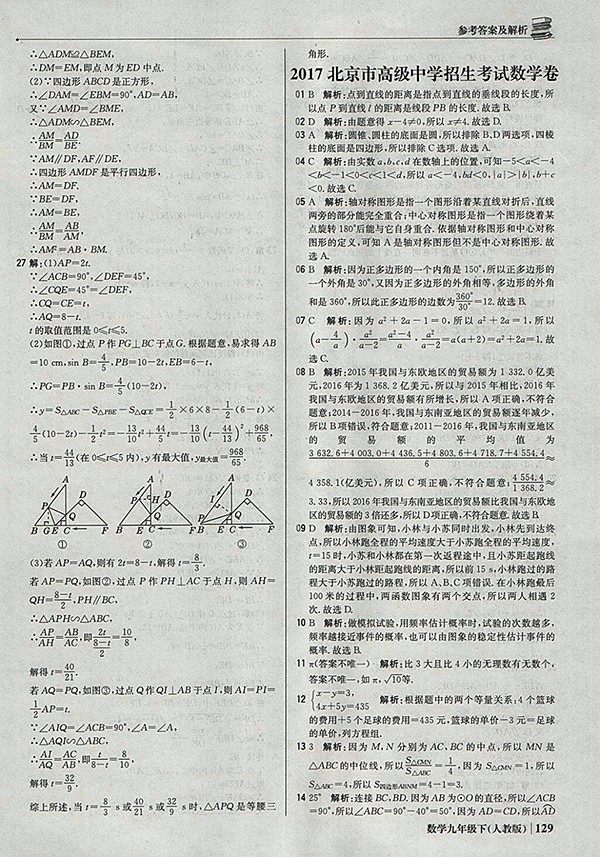 参考答案及解析
∴△ADM≌△BEM,
∴DM=EM,即点M为ED中点.
(2)∵四边形ABCD是正方形,
∴∠DAM=∠EBM=90°,AD=AB,
又∵∠AMD=∠BME,
∴△ADM∽△BEM,
∴AM/BM=AD/BE.
∵AM∥DF,AF∥DE,
∴四边形AMDF是平行四边形,
∴AM=DF.
∵BE=DF,
∴AM=BE,
∴AM/BM=AB/AM,
∴AM²=AB·BM.
27 解:(1)AP=2t.
∵∠ACB=90°,∠DEF=45°,
∴∠CQE=45°=∠DEF,
∴CQ=CE=t,
∴AQ=8-t.
t的取值范围是0≤t≤5.
(2)如图①,过点P作PG⊥BC于点G.根据题意,易求得AB
=10 cm,sin B=4/5,PB=10-2t,EB=6-t,
∴PG=PB·sin B=4/5(10-2t),
∴y=S△ABC-S△PBE-S△QCE=1/2×6×8-1/2(6-t)×
4/5(10-2t)-1/2t²=-13/10t²+44/5t=-13/10(t-44/13)²+968/65,
∴当t=44/13(在0≤t≤5内),y有最大值,y最大值=968/65.
① ② ③
(3)若AP=AQ,则有2t=8-t,解得t=8/3.
若AP=PQ,如图②,过点P作PH⊥AC于点H,则AH=
QH=(8-t)/2,PH∥BC,
∴△APH∽△ABC,
∴AP/AH=AB/AC,即2t/((8-t)/2)=10/8,
解得t=40/21.
若AQ=PQ,如图③,过点Q作QI⊥AB于点I,则AI=PI=
1/2AP=t.
∵∠AIQ=∠ACB=90°,∠A=∠A,
∴△AQI∽△ABC,
∴AI/AQ=AC/AB,即t/(8-t)=8/10,
解得t=32/9.
综上所述,当t=8/3 s或40/21 s或32/9 s时,△APQ是等腰三
角形.
2017 北京市高级中学招生考试数学卷
01 B 解析:点到直线的距离是指点到直线的垂线段的长度,所
以点P到直线l的距离是线段PB的长度.故选B.
02 D 解析:由题意得x-4≠0,所以x≠4.故选D.
03 A 解析:圆锥、圆柱的底面是圆,所以排除B、D两选项,四棱
柱的底面是四边形,所以排除C选项.故选A.
04 C 解析:由实数a,b,c,d在数轴上的位置,可知-5<a<-4
<b<-1<0<c<1<d,所以a<-4,bd<0,|a|>|b|,b+c
<0.故选C.
05 A 解析:轴对称图形是指一个图形沿着某直线对折后,直线
两旁的部分能完全重合;中心对称图形是指一个图形绕着某
点旋转180°后能与它自身重合.依据轴对称图形和中心对称
图形的定义,可知A是轴对称图形但不是中心对称图形.故
选A.
06 B 解析:因为正多边形的一个内角是150°,所以正多边形的
一个外角是30°,又因为正多边形的外角相等,多边形的外角
和是360°,所以此正多边形的边数为360°/30°=12.故选B.
07 C 解析:因为a²+2a-1=0,所以a²+2a=1,所以
(a-4/a)·a²/(a-2)=(a²-4)/a·a²/(a-2)=a(a+2)=a²+2a=1.故
选C.
08 B 解析:2015年我国与东欧地区的贸易额为1 332.0亿美
元,2016年为1 368.2亿美元,所以与2015年相比,2016年
我国与东欧地区的贸易额有所增长,所以A项正确,不符合
题意;2014-2016年,我国与东南亚地区的贸易额逐年减少,
所以B项错误,符合题意;2011-2016年,我国与东南亚地区
的贸易额的平均值为
(3 632.6+4 003.0+4 436.5+4 803.6+4 718.7+4 554.4)/6≈
4 358.1(亿美元),所以C项正确,不符合题意;4 554.4/1 368.2≈
3.33,所以2016年我国与东南亚地区的贸易额比我国与东欧地
区的贸易额的3倍还多,所以D项正确,不符合题意.故选B.
09 D 解析:由图象可知,小林与小苏同时出发,小林先到达终
点,所以小林跑全程的平均速度大于小苏跑全程的平均速度,
t=15时,小苏和小林都在第一次返程途中,且小苏距起跑线
的距离大于小林距起跑线的距离,所以前15 s,小林跑过的路
程大于小苏跑过的路程,所以A、B、C项错误.在小林跑最后
100米的过程中,两函数图象有两个交点,所以两人相遇2
次.故选D.
10 B 解析:做模拟试验,用频率估计概率时,试验的次数越多,
频率越接近事件的概率,也可以由图象的稳定性估计事件的
概率.故选B.
11 π(答案不唯一) 解析:比3大且比4小的无理数有无数个,
答案不唯一,如π,√10等.
12 {x-y=3, 4x+5y=435 解析:根据题中的两个等量关系:4个篮球
的费用+5个足球的费用=435元,篮球的单价-3元=足球
的单价,列方程组.
13 3 解析:因为M,N分别为AC,BC的中点,所以MN是
△ABC的中位线,所以S△CMN/S△ABC=1/4.因为S△CMN=1,所以
S△ABC=4,所以S四边形ABNM=4-1=3.
14 25° 解析:连接BC,BD.因为AB为⊙O的直径,所以∠ACB
=90°,所以∠ABC=90°-40°=50°.因为AD=CD,所以AD
数学九年级下(人教版) 129